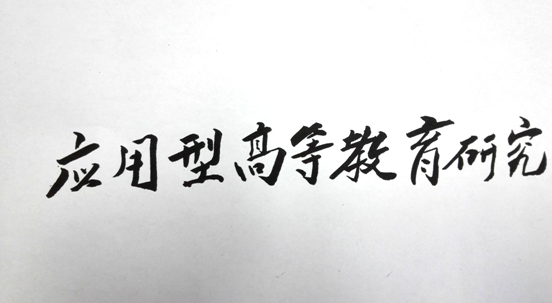 应用型高等教育研究